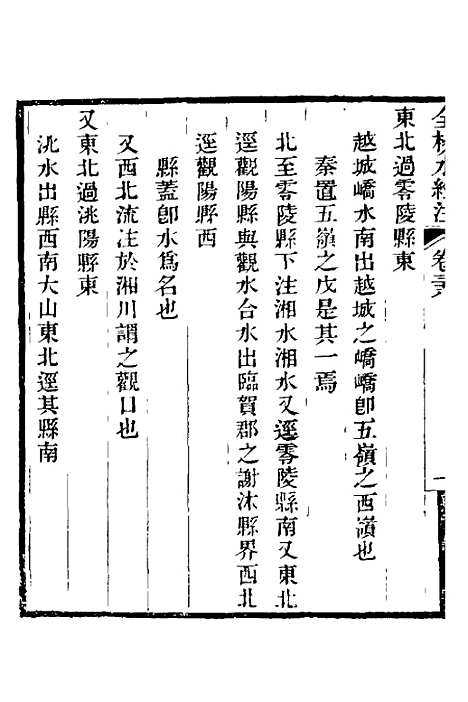 全校水經注 卷三
東北過零陵縣東
越城嶠水南出越城之嶠嶠卽五嶺之西嶺也
秦置五嶺之戍是其一焉
北至零陵縣下注湘水湘水又逕零陵縣南又東北
逕觀陽縣與觀水合水出臨賀郡之謝沐縣界西北
逕觀陽縣西
縣蓋卽水爲名也
又西北流注於湘川謂之觀口也
又東北過洮陽縣東
洮水出縣西南大山東北逕其縣南